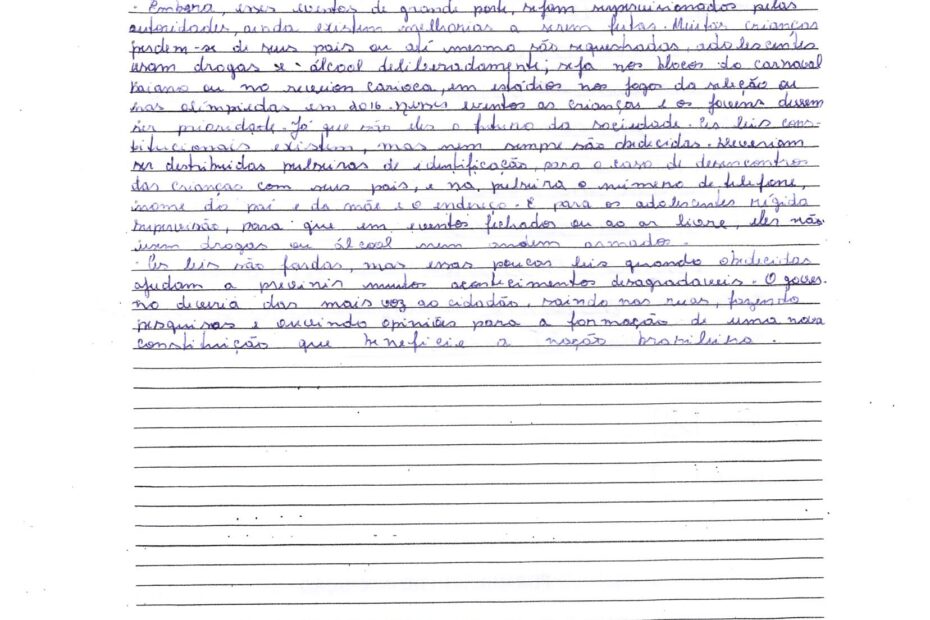 - Embora, esses eventos de grande porte, sejam supervisionados pelas
autoridades, ainda existem melhorias a serem feitas. Muitas crianças
perdem-se de seus pais ou até mesmo são sequestradas, adolescentes
usam drogas e álcool deliberadamente; seja nos blocos do carnaval
baiano ou no reveion carioca, em estádios nos jogos da seleção ou
nas olimpíadas em 2016. Nesses eventos as crianças e os jovens devem
ser prioridade. Já que são eles o futuro da sociedade. As leis cons-
titucionais existem, mas nem sempre são obedecidas. Deveriam
ser distribuidas pulseiras de identificação, para o caso de desencontros
das crianças com seus pais, e na pulseira o número de telefone,
nome do pai e da mãe e o endereço. E para os adolescentes rígida
supervisão, para que em eventos fechados ou ao ar livre, eles não
usem drogas ou álcool nem andem armados.
- As leis são fardas, mas essas poucas leis quando obedecidas
ajudam a previnir muitos acontecimentos desagradaveis. O gover-
no deveria das mais voz ao cidadão, saindo nas ruas, fazendo
pesquisas e ouvindo opiniões para a formação de uma nova
constituição que beneficie a nação brasileira.